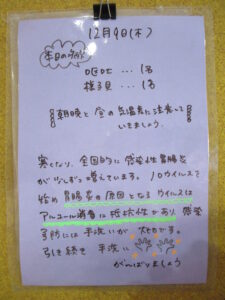 12月9日(木)
本日の欠席
嘔吐…1名
様子見…1名
朝晩と昼の気温差に注意して
いきましょう。
寒くなり、全国的に感染性胃腸炎
が増えています。ノロウイルスを
始め胃腸炎の原因となるウイルスは
アルコール消毒に抵抗性があり、感染
予防には手洗いが大切です。
引き続き手洗い
がんばりましょう